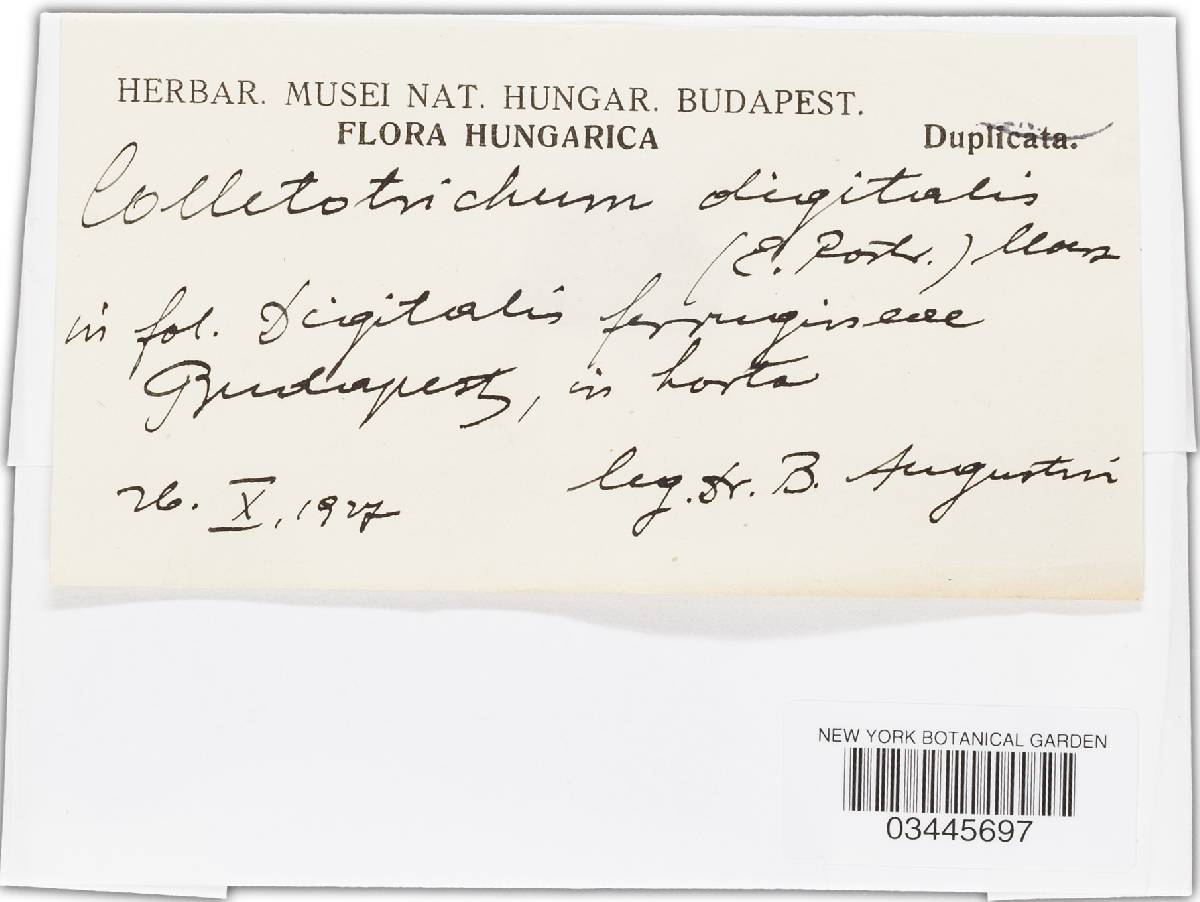 HERBAR. MUSEI NAT. HUNGAR. BUDAPEST.
FLORA HUNGARICA Duplicata.
Colletotrichum digitalis
(E. Rostr.) Moesz
in fol. Digitalis ferrugineae
Budapest, in horto
26. X, 1927 leg. Dr. B. Augustin
NEW YORK BOTANICAL GARDEN
03445697